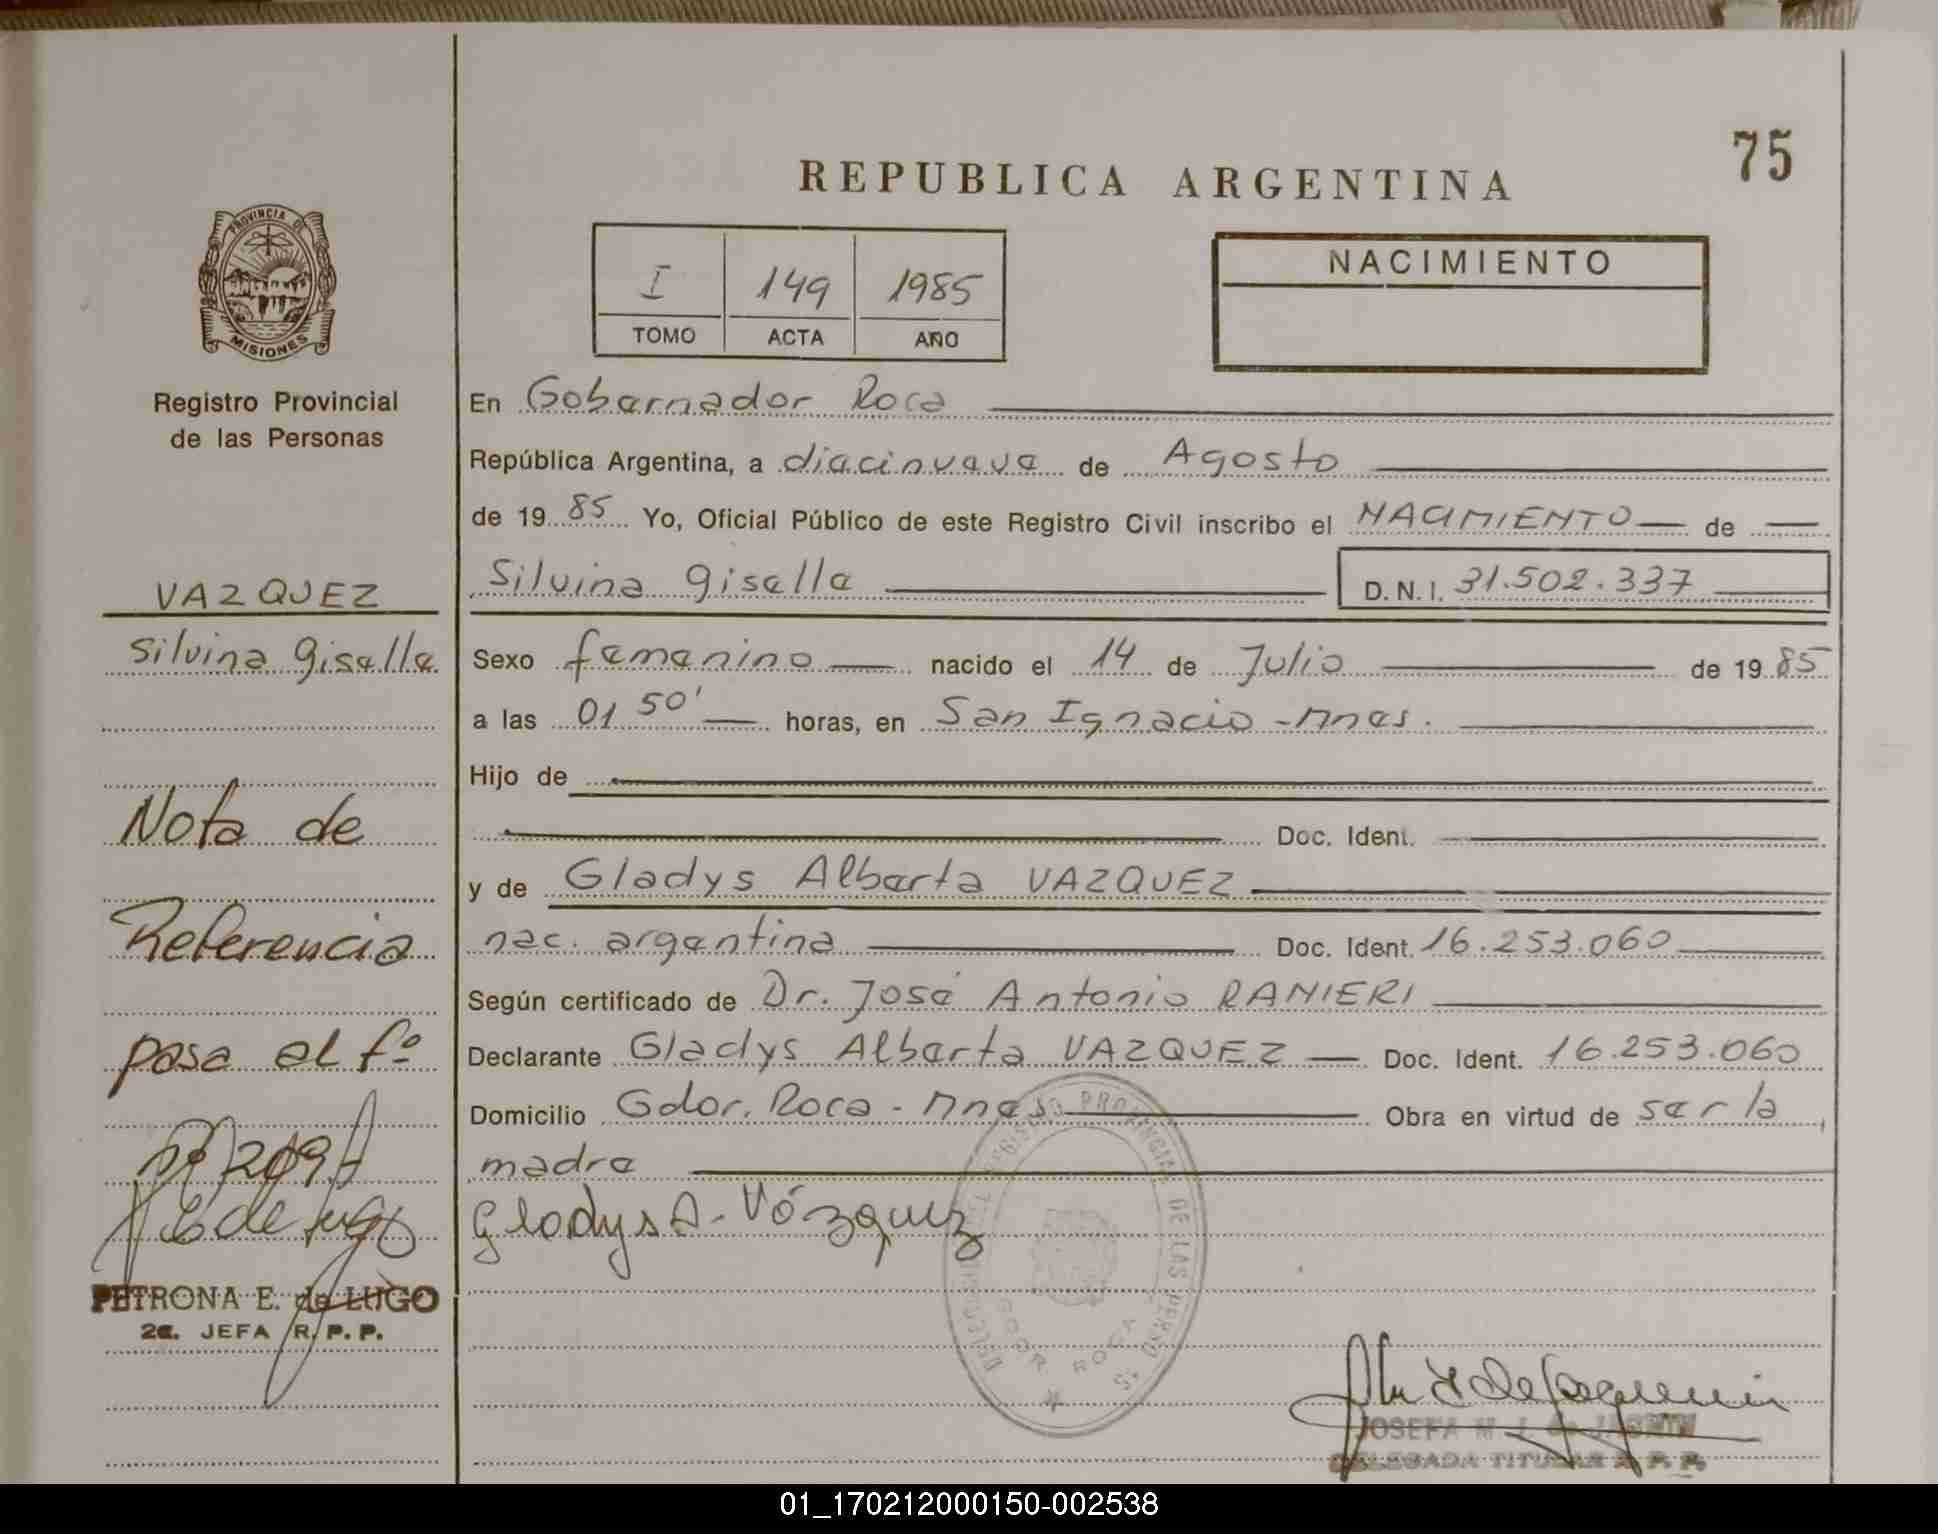 75
REPUBLICA ARGENTINA
PROVINCIA DE
MISIONES
I 149 1985
TOMO ACTA AÑO
NACIMIENTO
Registro Provincial
de las Personas
En Gobernador Roca
República Argentina, a diecinueve de Agosto
de 1985 Yo, Oficial Público de este Registro Civil inscribo el NACIMIENTO de
Silvina Giselle D.N.I. 31.502.337
VAZQUEZ
Silvina Giselle
Sexo femenino nacido el 14 de Julio de 1985
a las 01 50' horas, en San Ignacio - Mnes.
Hijo de
Doc. Ident.
y de Gladys Alberta VAZQUEZ
nac. argentina Doc. Ident. 16.253.060
Según certificado de Dr. José Antonio RANIERI
Declarante Gladys Alberta VAZQUEZ Doc. Ident. 16.253.060
Domicilio Gdor. Roca - Mnes Obra en virtud de ser la
madre
Gladys A. Vázquez
Nota de
Referencia
pasa al fº
PETRONA E. de LUGO
2a. JEFA R. P. P.
REGISTRO PROVINCIAL DE LAS PERSONAS
GDOR. ROCA
JOSEFA M. J. de
DELEGADA TITULAR R. P. P.
01_170212000150-002538